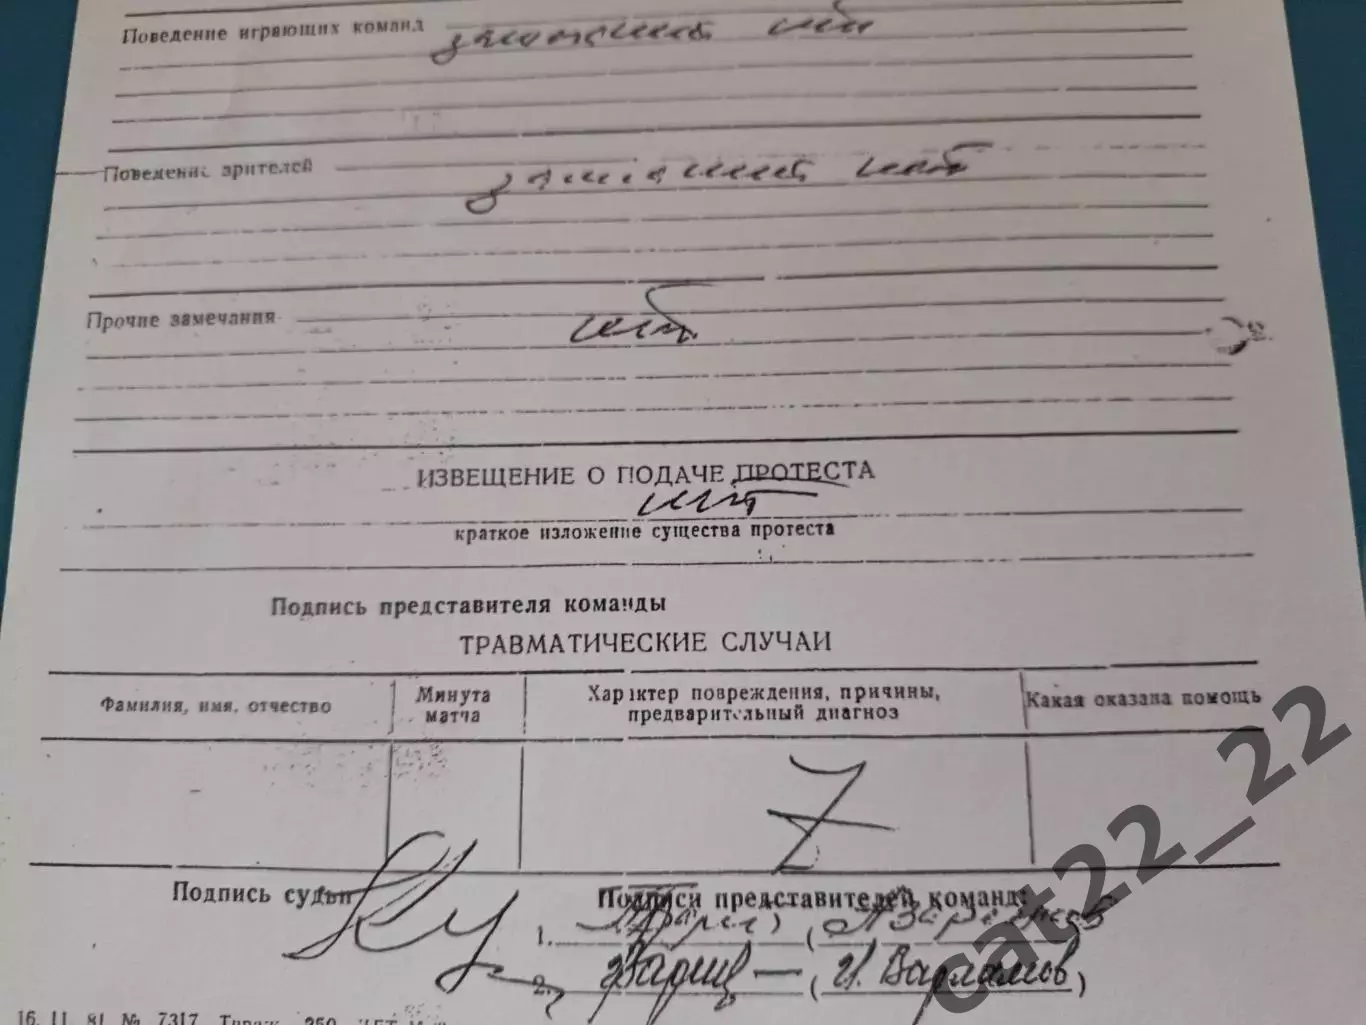 Поведение играющих команд замечаний нет
Поведение зрителей замечаний нет
Прочие замечания нет
ИЗВЕЩЕНИЕ О ПОДАЧЕ ПРОТЕСТА
нет
краткое изложение существа протеста
Подпись представителя команды
ТРАВМАТИЧЕСКИЕ СЛУЧАИ
Фамилия, имя, отчество
Минута матча
Характер повреждения, причины, предварительный диагноз
Какая оказана помощь
Z
Подпись судьи
Подписи представителей команд:
1.
2. (И. Варламов)
16. 11. 81 № 7317 Тираж 250
cat22_22